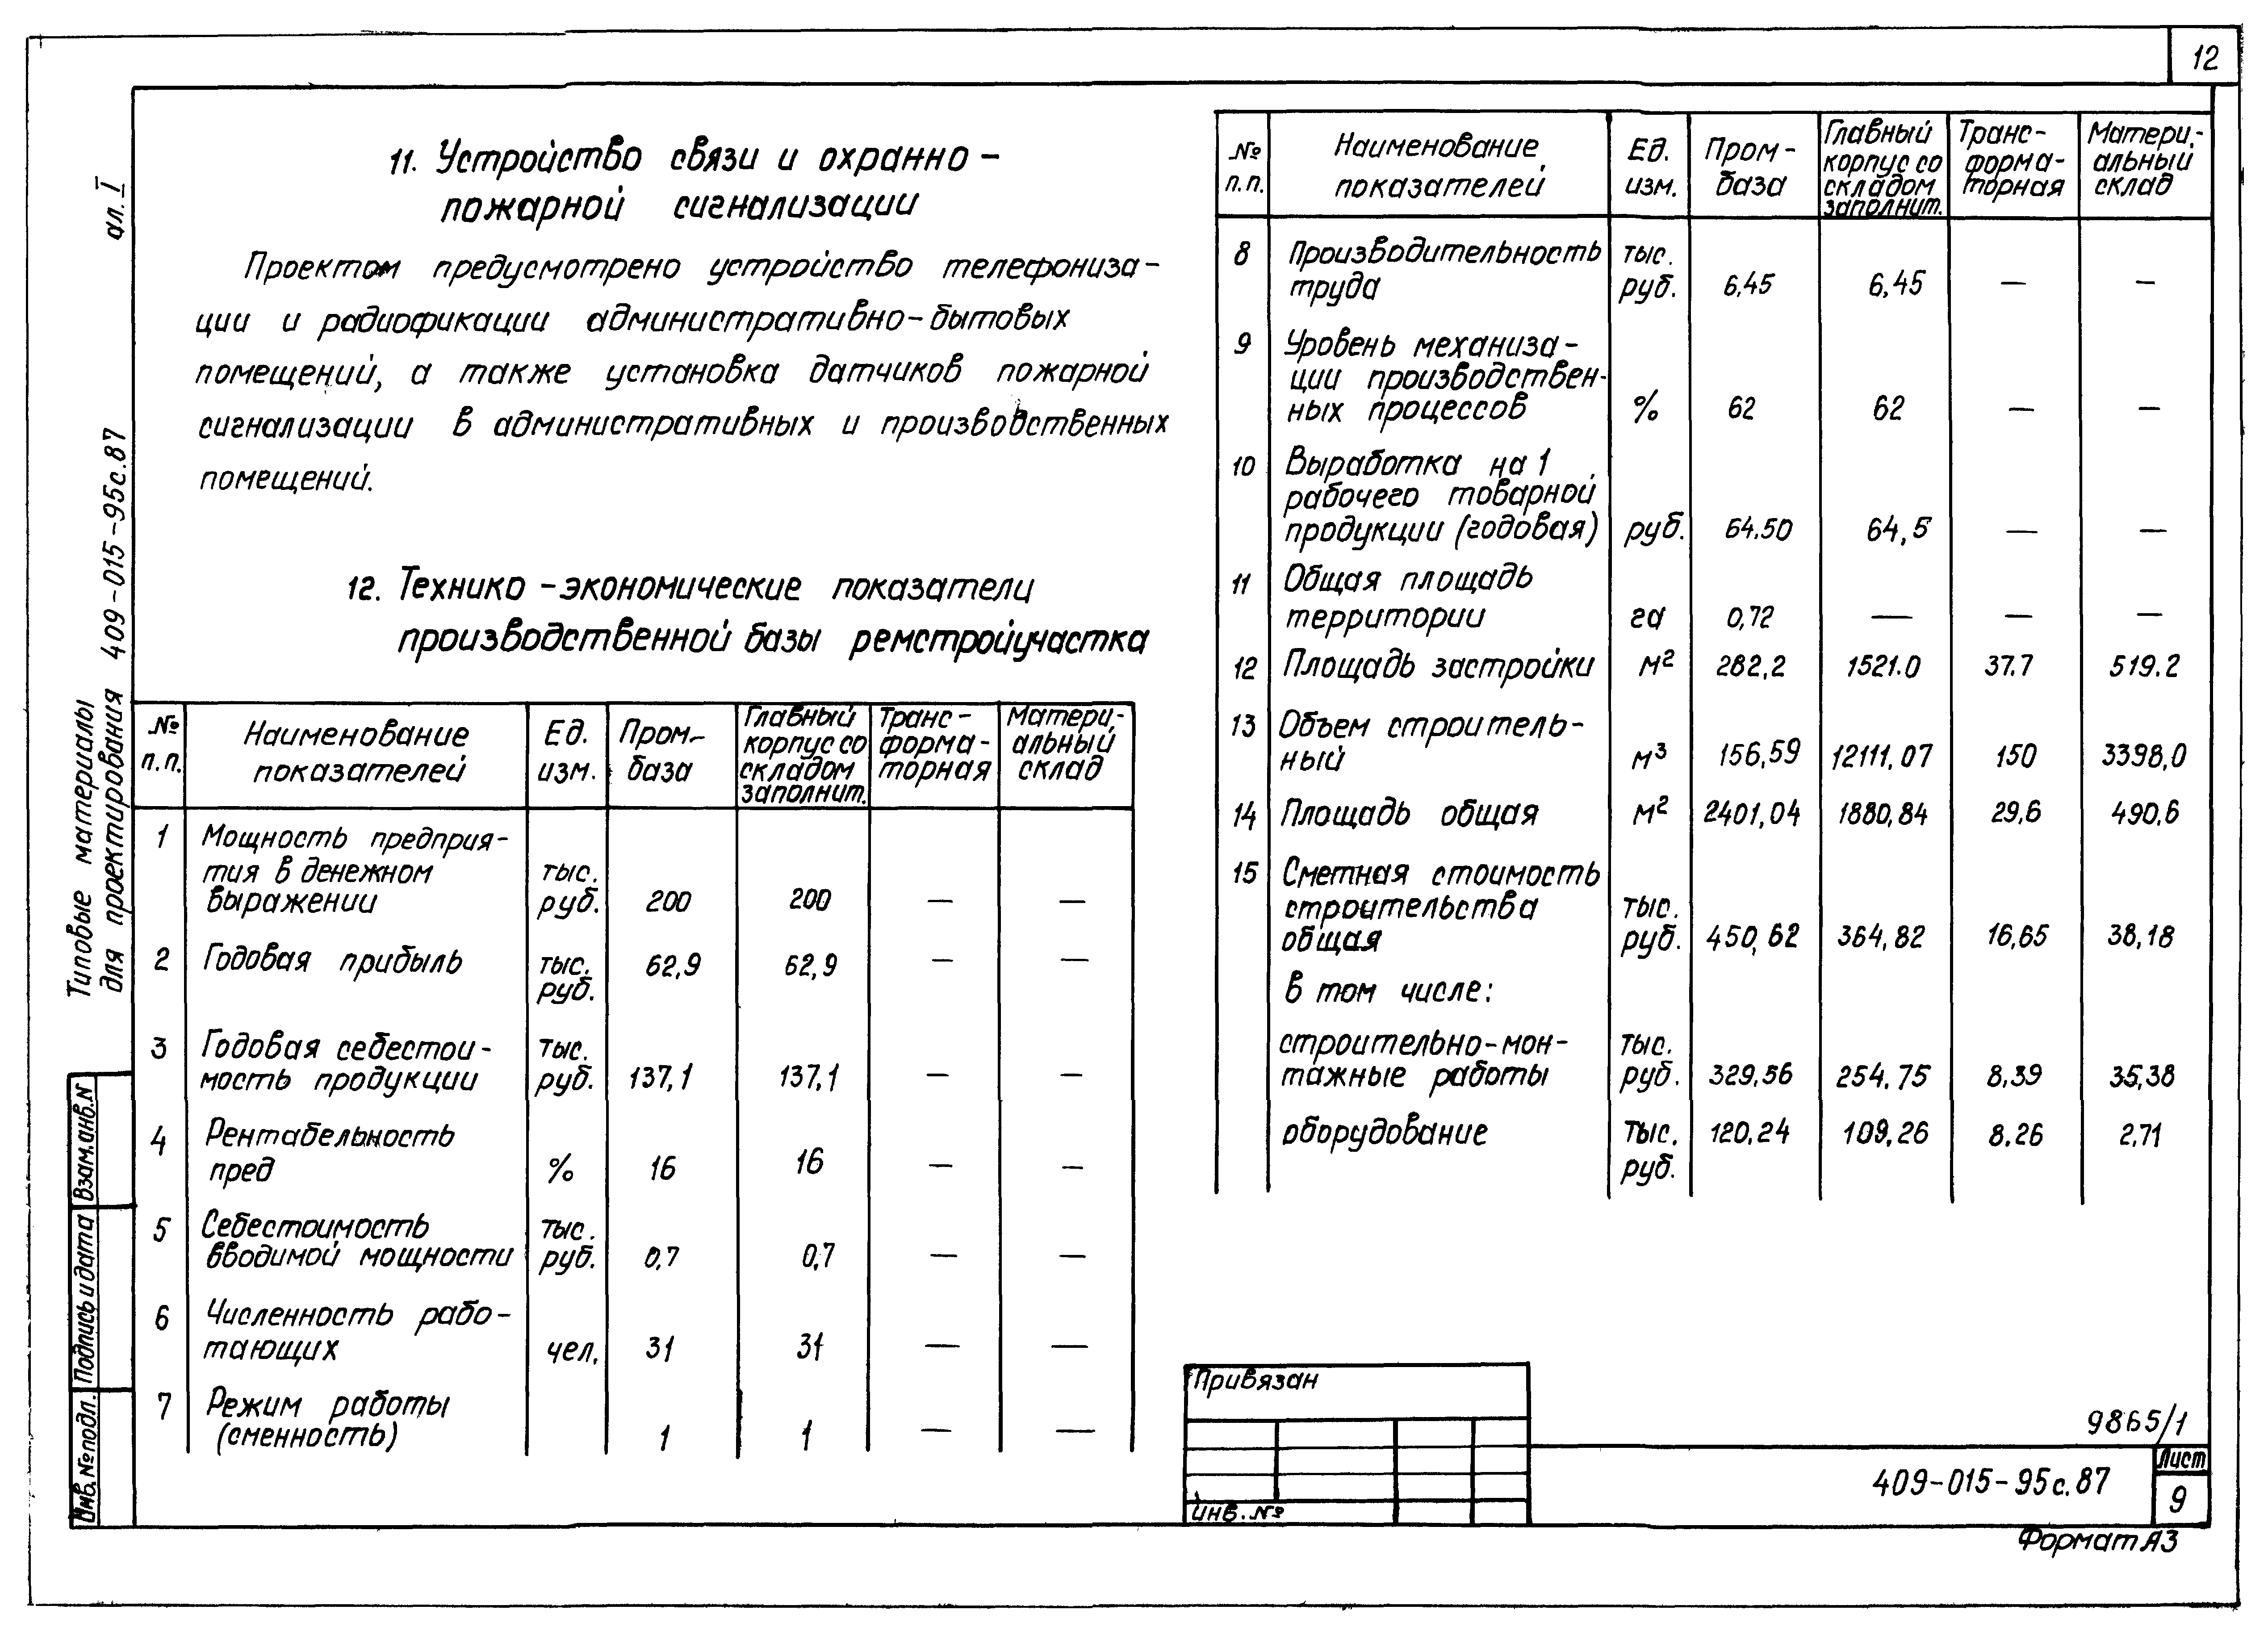 12
ал. I
Типовые материалы
для проектирования 409-015-95с.87
11. Устройство связи и охранно-
пожарной сигнализации
Проектом предусмотрено устройство телефониза-
ции и радиофикации административно-бытовых
помещений, а также установка датчиков пожарной
сигнализации в административных и производственных
помещений.
12. Технико-экономические показатели
производственной базы ремстройучастка
№ п.п. Наименование показателей Ед. изм. Пром-база Главный корпус со складом заполнит. Транс-форма-торная Матери-альный склад
1 Мощность предприя-
тия в денежном тыс.
выражении руб. 200 200 — —
2 Годовая прибыль тыс. 62,9 62,9 — —
руб.
3 Годовая себестои- тыс.
мость продукции руб. 137,1 137,1 — —
4 Рентабельность
пред % 16 16 — —
5 Себестоимость тыс.
вводимой мощности руб. 0,7 0,7 — —
6 Численность рабо-
тающих чел. 31 31 — —
7 Режим работы
(сменность) 1 1 — —
№ п.п. Наименование показателей Ед. изм. Пром-база Главный корпус со складом заполнит. Транс-форма-торная Матери-альный склад
8 Производительность тыс.
труда руб. 6,45 6,45 — —
9 Уровень механиза-
ции производствен-
ных процессов % 62 62 — —
10 Выработка на 1
рабочего товарной
продукции (годовая) руб. 64.50 64,5 — —
11 Общая площадь
территории га 0,72 — — —
12 Площадь застройки м² 282,2 1521.0 37.7 519.2
13 Объем строитель-
ный м³ 156,59 12111,07 150 3398,0
14 Площадь общая м² 2401,04 1880,84 29,6 490,6
15 Сметная стоимость
строительства тыс.
общая руб. 450,62 364,82 16,65 38,18
в том числе:
строительно-мон- тыс.
тажные работы руб. 329,56 254,75 8,39 35,38
оборудование тыс. 120,24 109,26 8.26 2,71
руб.
Взам.инв.N
Подпись и дата
Инв.№подл.
Привязан
Инв. №
9865/1
409-015-95с.87
Лист
9
Формат А3